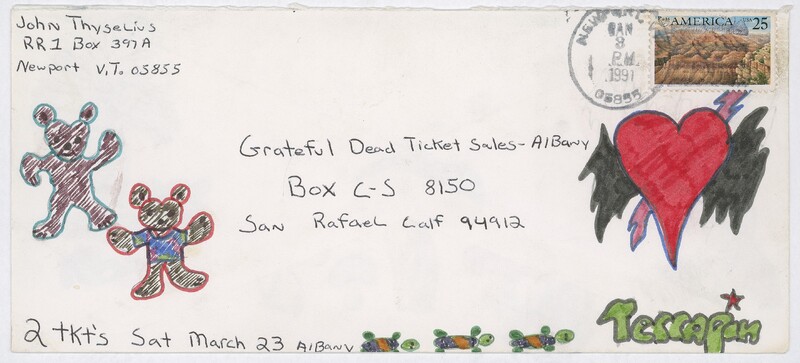 John Thyselius
RR1 Box 397A
Newport V.T. 05855
NEWPORT,
JAN
8
P.M.
1991
05855
AMERICA USA 25
Grateful Dead Ticket Sales - Albany
Box C-S 8150
San Rafael Calf 94912
2 tkt's Sat March 23 Albany
Terrapin